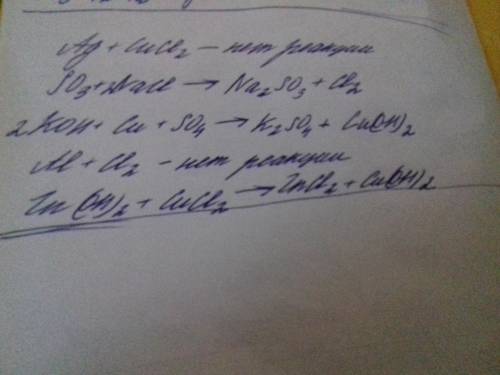 Ag + CuCl₂ – нет реакции
SO₃ + 2NaCl → Na₂SO₃ + Cl₂
2KOH + Cu + SO₄ → K₂SO₄ + Cu(OH)₂
Al + Cl₂ – нет реакции
Zn(OH)₂ + CuCl₂ → ZnCl₂ + Cu(OH)₂